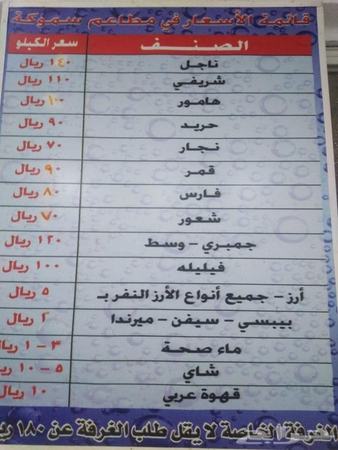 قائمة الأسعار في مطاعم سموكة
الصنف سعر الكيلو
ناجل ١٤٠ ريال
شريفي ١١٠ ريال
هامور ١٠٠ ريال
حريد ٩٠ ريال
نجار ٧٠ ريال
قمر ٩٠ ريال
فارس ٨٠ ريال
شعور ٧٠ ريال
جمبري – وسط ١٢٠ ريال
فيليله ١٠٠ ريال
أرز – جميع أنواع الأرز النفر بـ ٥ ريال
بيبسي – سيفن – ميرندا ٢ ريال
ماء صحة ٣ – ١ ريال
شاي ٥ – ١٠ ريال
قهوة عربي ١٠ ريال
الغرفة الخاصة لا يقل طلب الغرفة عن ١٨٠